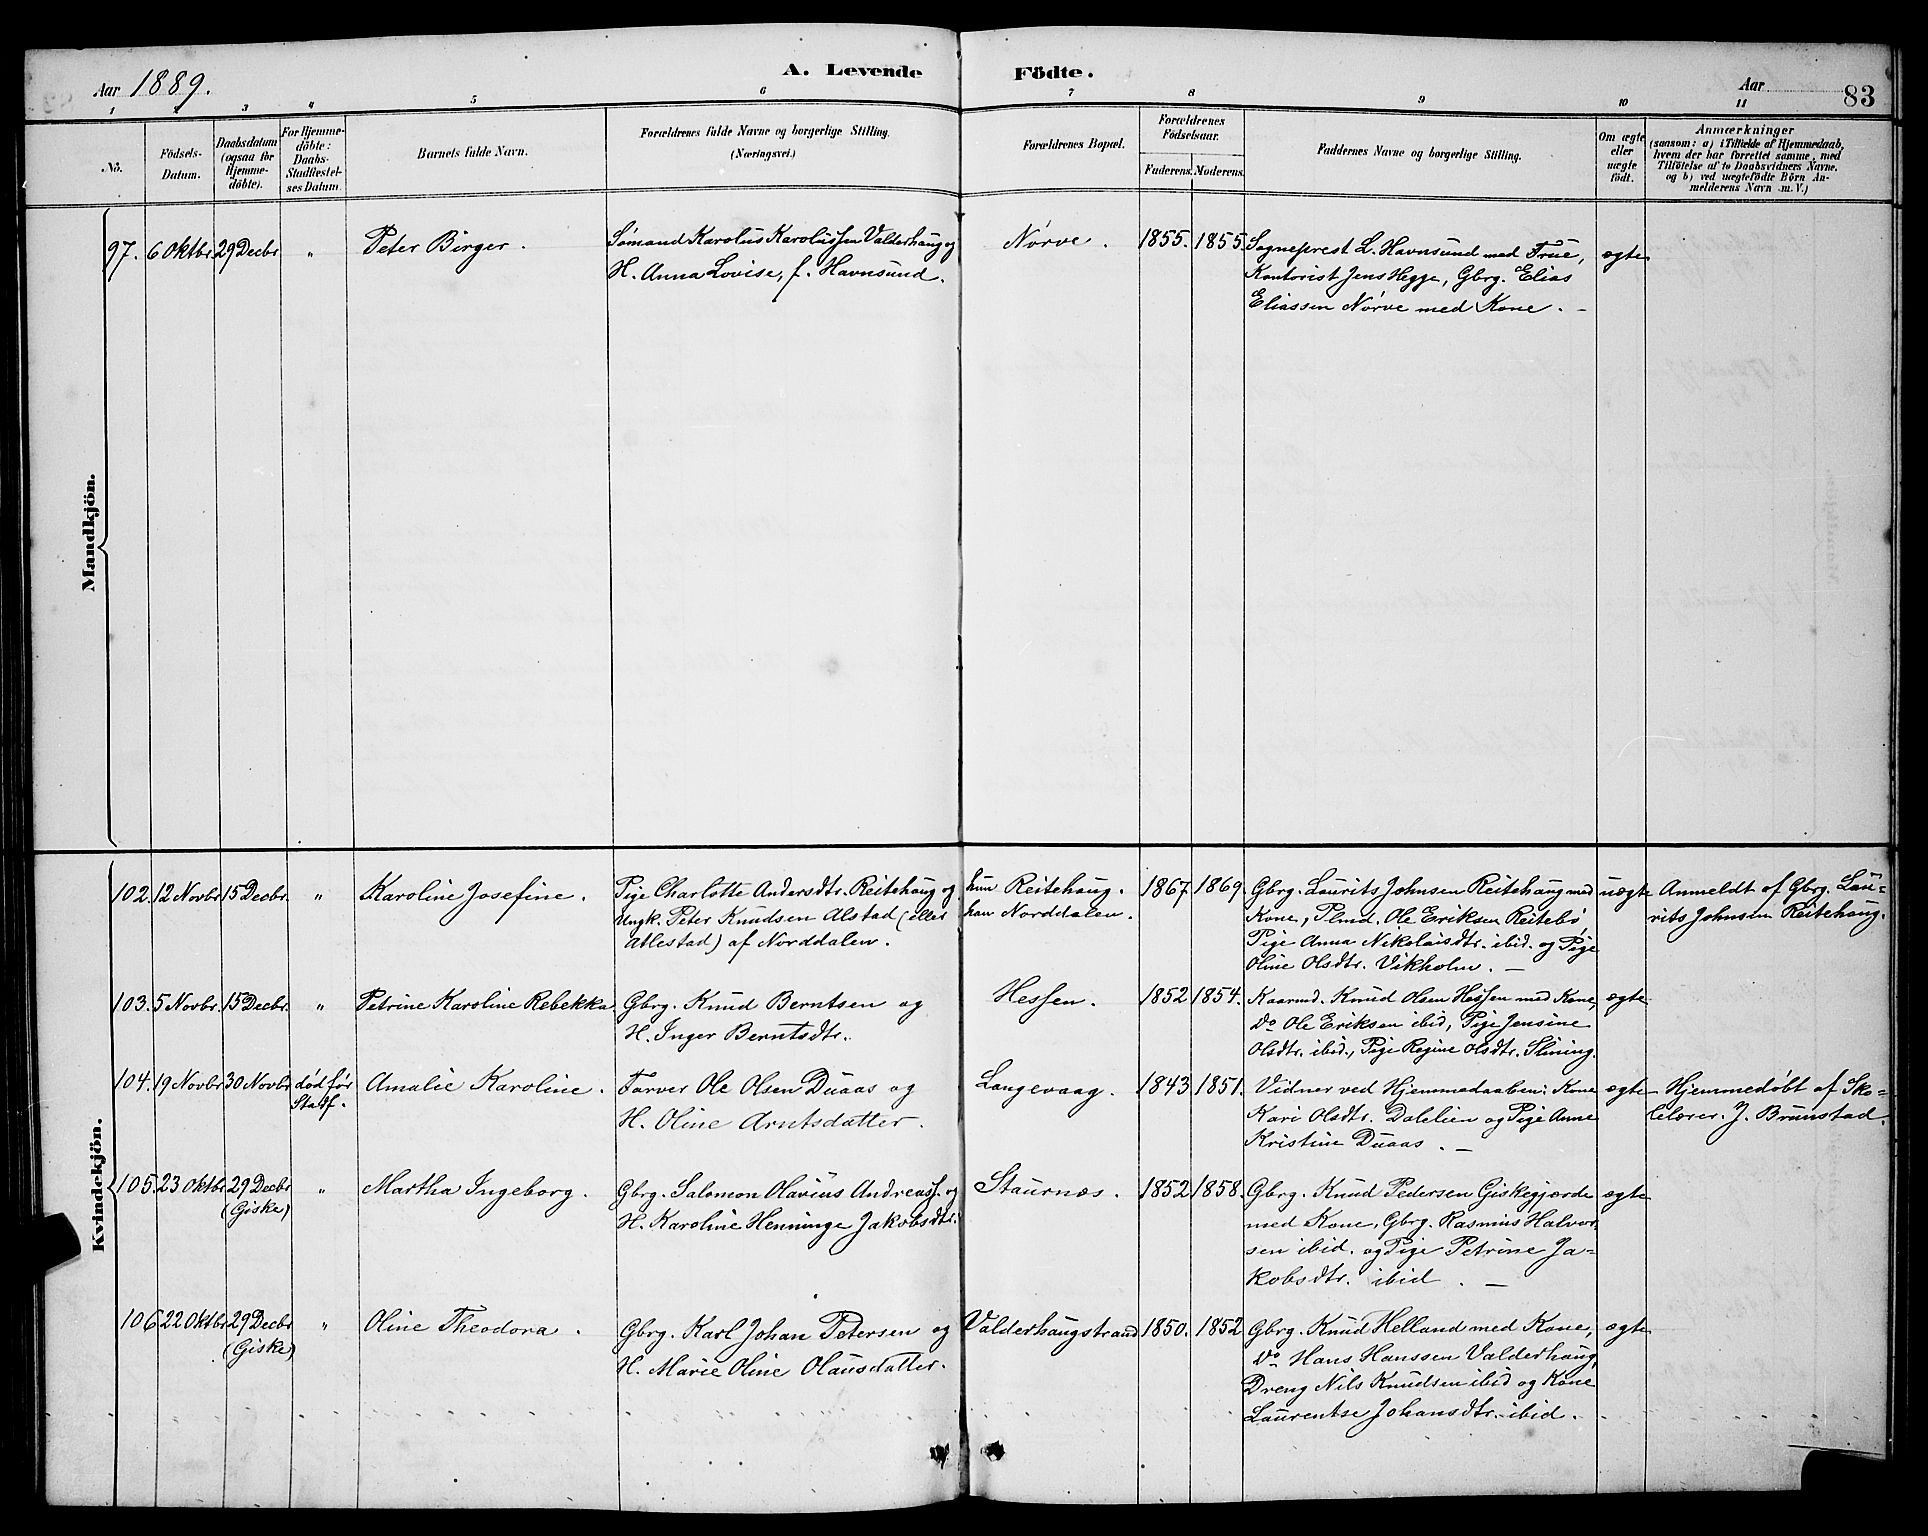 Aar 1889.
A. Levende Födte.
Aar
83
1 3 4 5 6 7 8 9 10 11
No.
Födsels-
Datum.
Daabsdatum
(ogsaa for
Hjemme-
döbte).
For Hjemme-
döbte:
Daabs-
Stadfæstel-
ses Datum.
Barnets fulde Navn.
Forældrenes fulde Navne og borgerlige Stilling.
(Næringsvei.)
Forældrenes Bopæl.
Forældrenes
Födselsaar.
Faderens. Moderens.
Faddernes Navne og borgerlige Stilling.
Om ægte
eller
uægte
födt.
Anmærkninger
(saasom: a) i Tilfælde af Hjemmedaab,
hvem der har forrettet samme, med
Tilföielse af to Daabsvidners Navne,
og b) ved uægtefödte Börn An-
melderens Navn m. V.)
Mandkjön.
97. 6 Oktbr. 29 Decbr. " Peter Birger.
Sømand Karolus Karolussen Valderhaug og
H. Anna Lovise, f. Havnsund.
Nørve. 1855. 1855.
Sogneprest L. Havnsund med Frue,
Kontorist Jens Hegge, Gbrg. Elias
Eliassen Nørve med Kone. –
ægte
Kvindekjön.
102. 12 Novbr. 15 Decbr. " Karoline Josefine.
Pige Charlotte Andersdtr. Reitehaug og
Ungk. Peter Knudsen Alstad (eller
Ablestad) af Norddalen.
hun Reitehaug.
han Norddalen.
1867. 1869.
Gbrg. Laurits Johnsen Reitehaug med
Kone, Plmd. Ole Eriksen Reitebø
Pige Anna Nikolaisdtr. ibid. og Pige
Oline Olsdtr. Vikholm. –
uægte
Anmeldt af Gbrg. Lau-
rits Johnsen Reitehaug.
103. 5 Novbr. 15 Decbr. " Petrine Karoline Rebekka
Gbrg. Knud Berntsen og
H. Inger Berntsdtr.
Hessen. 1852 1854.
Kaarmd. Knud Olsen Hessen med Kone,
Do Ole Eriksen ibid, Pige Jensine
Olsdtr. ibid., Pige Regine Olsdtr. Slining.
ægte
104. 19 Novbr. 30 Novbr. død før
Stadf.
Amalie Karoline.
Farver Ole Olsen Duaas og
H. Oline Arntsdatter.
Langevaag. 1843 1851.
Vidner ved Hjemmedaaben: Kone
Kari Olsdtr. Dalelien og Pige Anne
Kristine Duaas. –
ægte
Hjemmedøbt af Sko-
lelærer J. Brunstad.
105. 23 Oktbr. 29 Decbr
(Giske)
" Martha Ingeborg.
Gbrg. Salomon Olavius Andreass. og
H. Karoline Henninge Jakobsdtr.
Staurnæs. 1852 1858.
Gbrg. Knud Pedersen Giskegjærde
med Kone, Gbrg. Rasmus Halvor-
sen ibid. og Pige Petrine Ja-
kobsdtr. ibid. –
ægte
106 22 Oktbr 29 Decbr
(Giske)
" Oline Theodora.
Gbrg. Karl Johan Petersen og
H. Marie Oline Olausdatter.
Valderhaugstrand 1850. 1852
Gbrg. Knud Helland med Kone,
Do Hans Hanssen Valderhaug,
Dreng Nils Knudsen ibid og Kone
Laurentse Johansdtr. ibid.
ægte